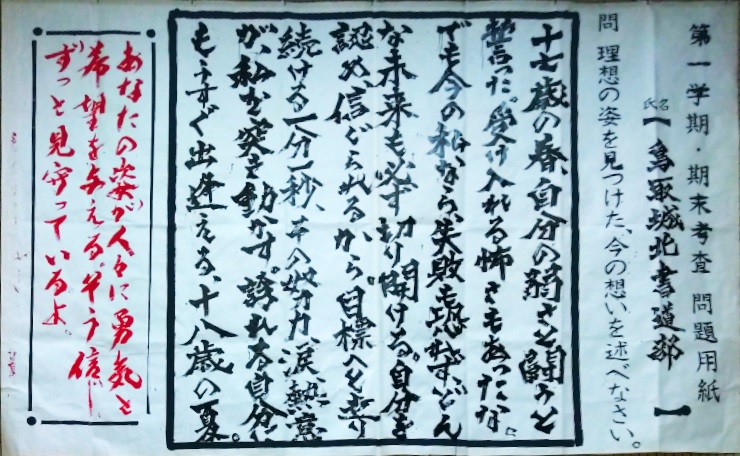 第一学期・期末考査 問題用紙
氏名【鳥取城北書道部】
問 理想の姿を見つけた、今の想いを述べなさい。
十七歳の春、自分の弱さと闘うと
誓った。受け入れる怖さもあったな。
でも今の私なら、失敗も恐れず、どん
な未来も必ず切り開ける。自分を
認め、信じられるから。目標へと走り
続ける一分一秒、本気の努力、涙、熱意
が、私を突き動かす。誇れる自分に
もうすぐ出逢える、十八歳の夏。
あなたの姿が人々に勇気と
希望を与える。そう信じ
ずっと見守っているよ。